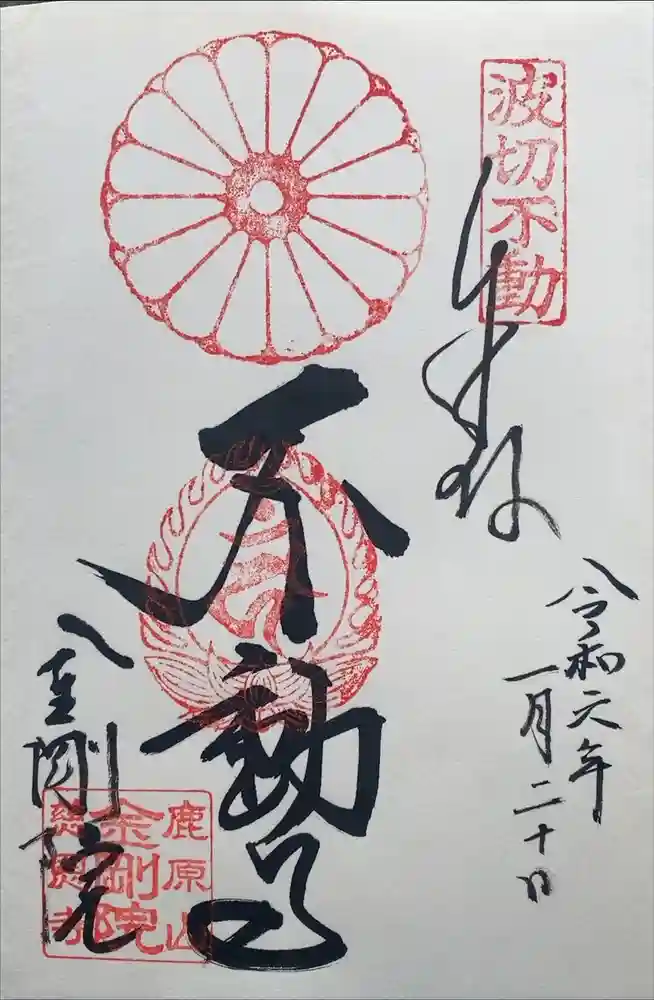 波切不動
奉拝
令和元年
一月二十日
不動
金剛院
鹿原山
金剛院
慈恩寺